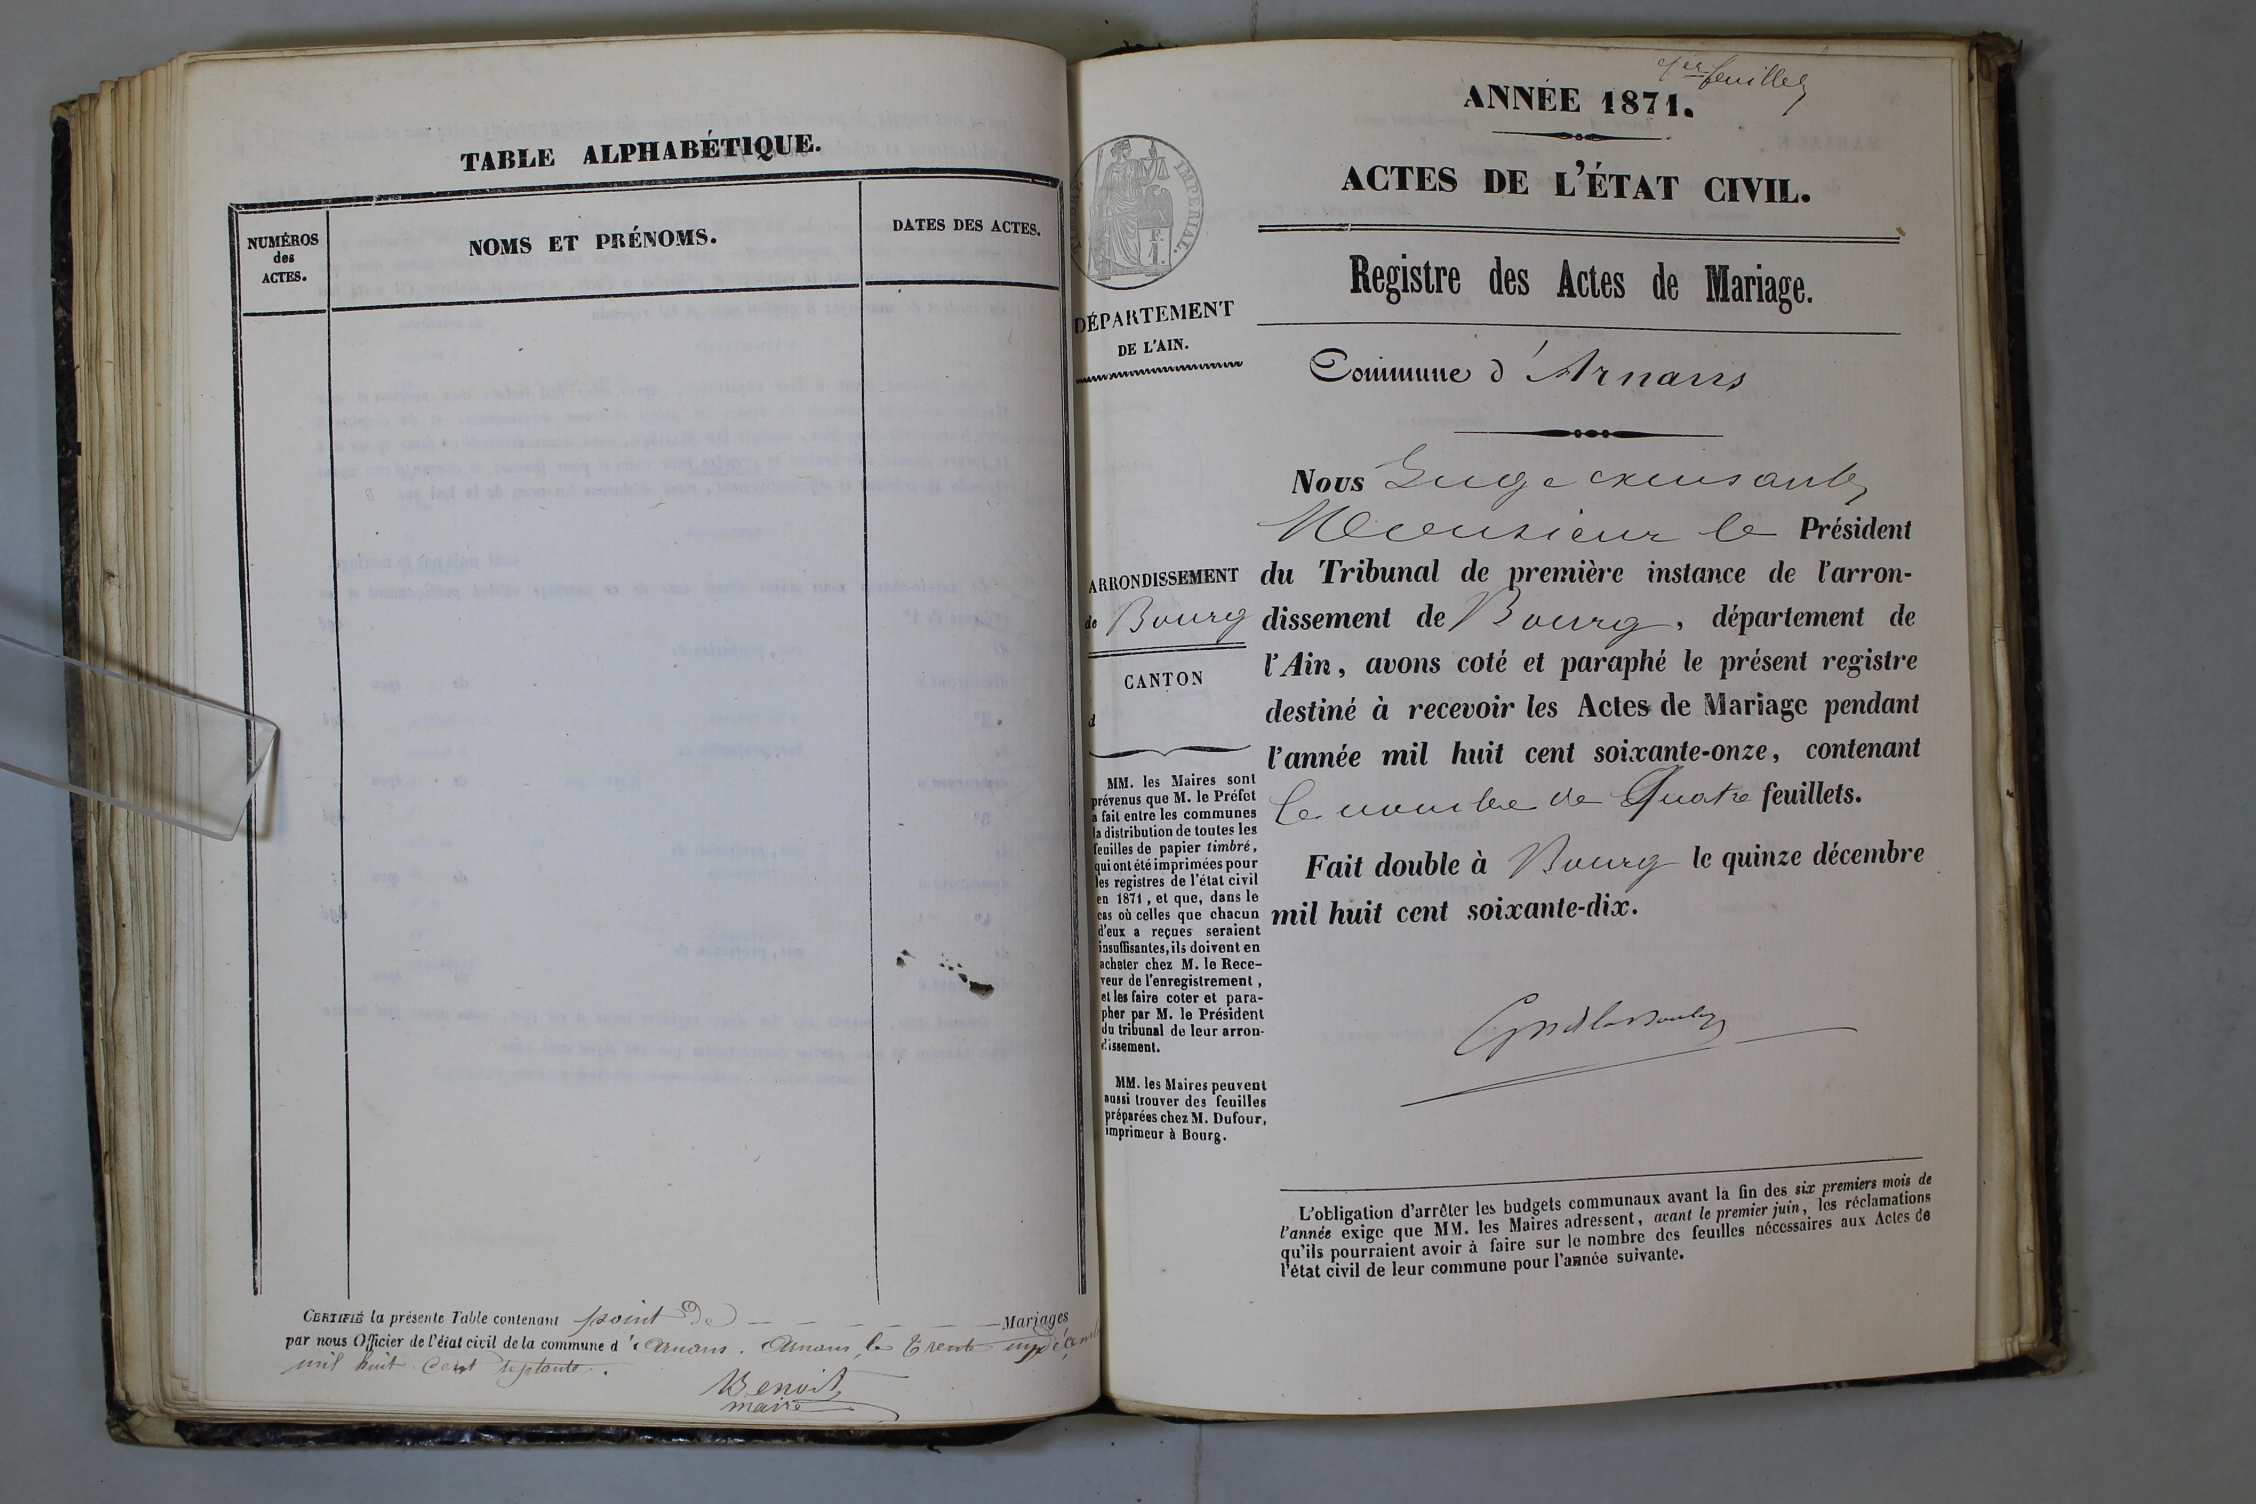 TABLE ALPHABÉTIQUE.
NUMÉROS
des
ACTES.
NOMS ET PRÉNOMS.
DATES DES ACTES.
CERTIFIÉ la présente Table contenant point de Mariages
par nous Officier de l'état civil de la commune d'Arnans. Arnans, le trente un décembre
mil huit cent septante.
Benoit
maire
1er feuillet
ANNÉE 1871.
ACTES DE L'ÉTAT CIVIL.
Registre des Actes de Mariage.
IMPÉRIAL.
1 F.
DÉPARTEMENT
DE L'AIN.
Commune d'Arnans
ARRONDISSEMENT
de Bourg
CANTON
d
MM. les Maires sont
prévenus que M. le Préfet
a fait entre les communes
la distribution de toutes les
feuilles de papier timbré,
qui ont été imprimées pour
les registres de l'état civil
en 1871, et que, dans le
cas où celles que chacun
d'eux a reçues seraient
insuffisantes, ils doivent en
acheter chez M. le Rece-
veur de l'enregistrement,
et les faire coter et para-
pher par M. le Président
du tribunal de leur arron-
dissement.
MM. les Maires peuvent
aussi trouver des feuilles
préparées chez M. Dufour,
imprimeur à Bourg.
Nous Juge
Monsieur le Président
du Tribunal de première instance de l'arron-
dissement de Bourg, département de
l'Ain, avons coté et paraphé le présent registre
destiné à recevoir les Actes de Mariage pendant
l'année mil huit cent soixante-onze, contenant
le nombre de Quatre feuillets.
Fait double à Bourg le quinze décembre
mil huit cent soixante-dix.
L'obligation d'arrêter les budgets communaux avant la fin des six premiers mois de
l'année exige que MM. les Maires adressent, avant le premier juin, les réclamations
qu'ils pourraient avoir à faire sur le nombre des feuilles nécessaires aux Actes de
l'état civil de leur commune pour l'année suivante.